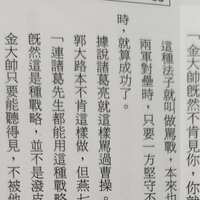 不肯見你，你就
這種法子就叫做罵戰，本來也
兩軍對壘時，只要一方堅守不
時，就算成功了。
據說諸葛亮就這樣罵過曹操。
郭大路本不肯這樣做，但燕七
「連諸葛先生都能用這種戰略
旣然這是種戰略，並不是潑皮
金大帥只要能聽得見，不被他